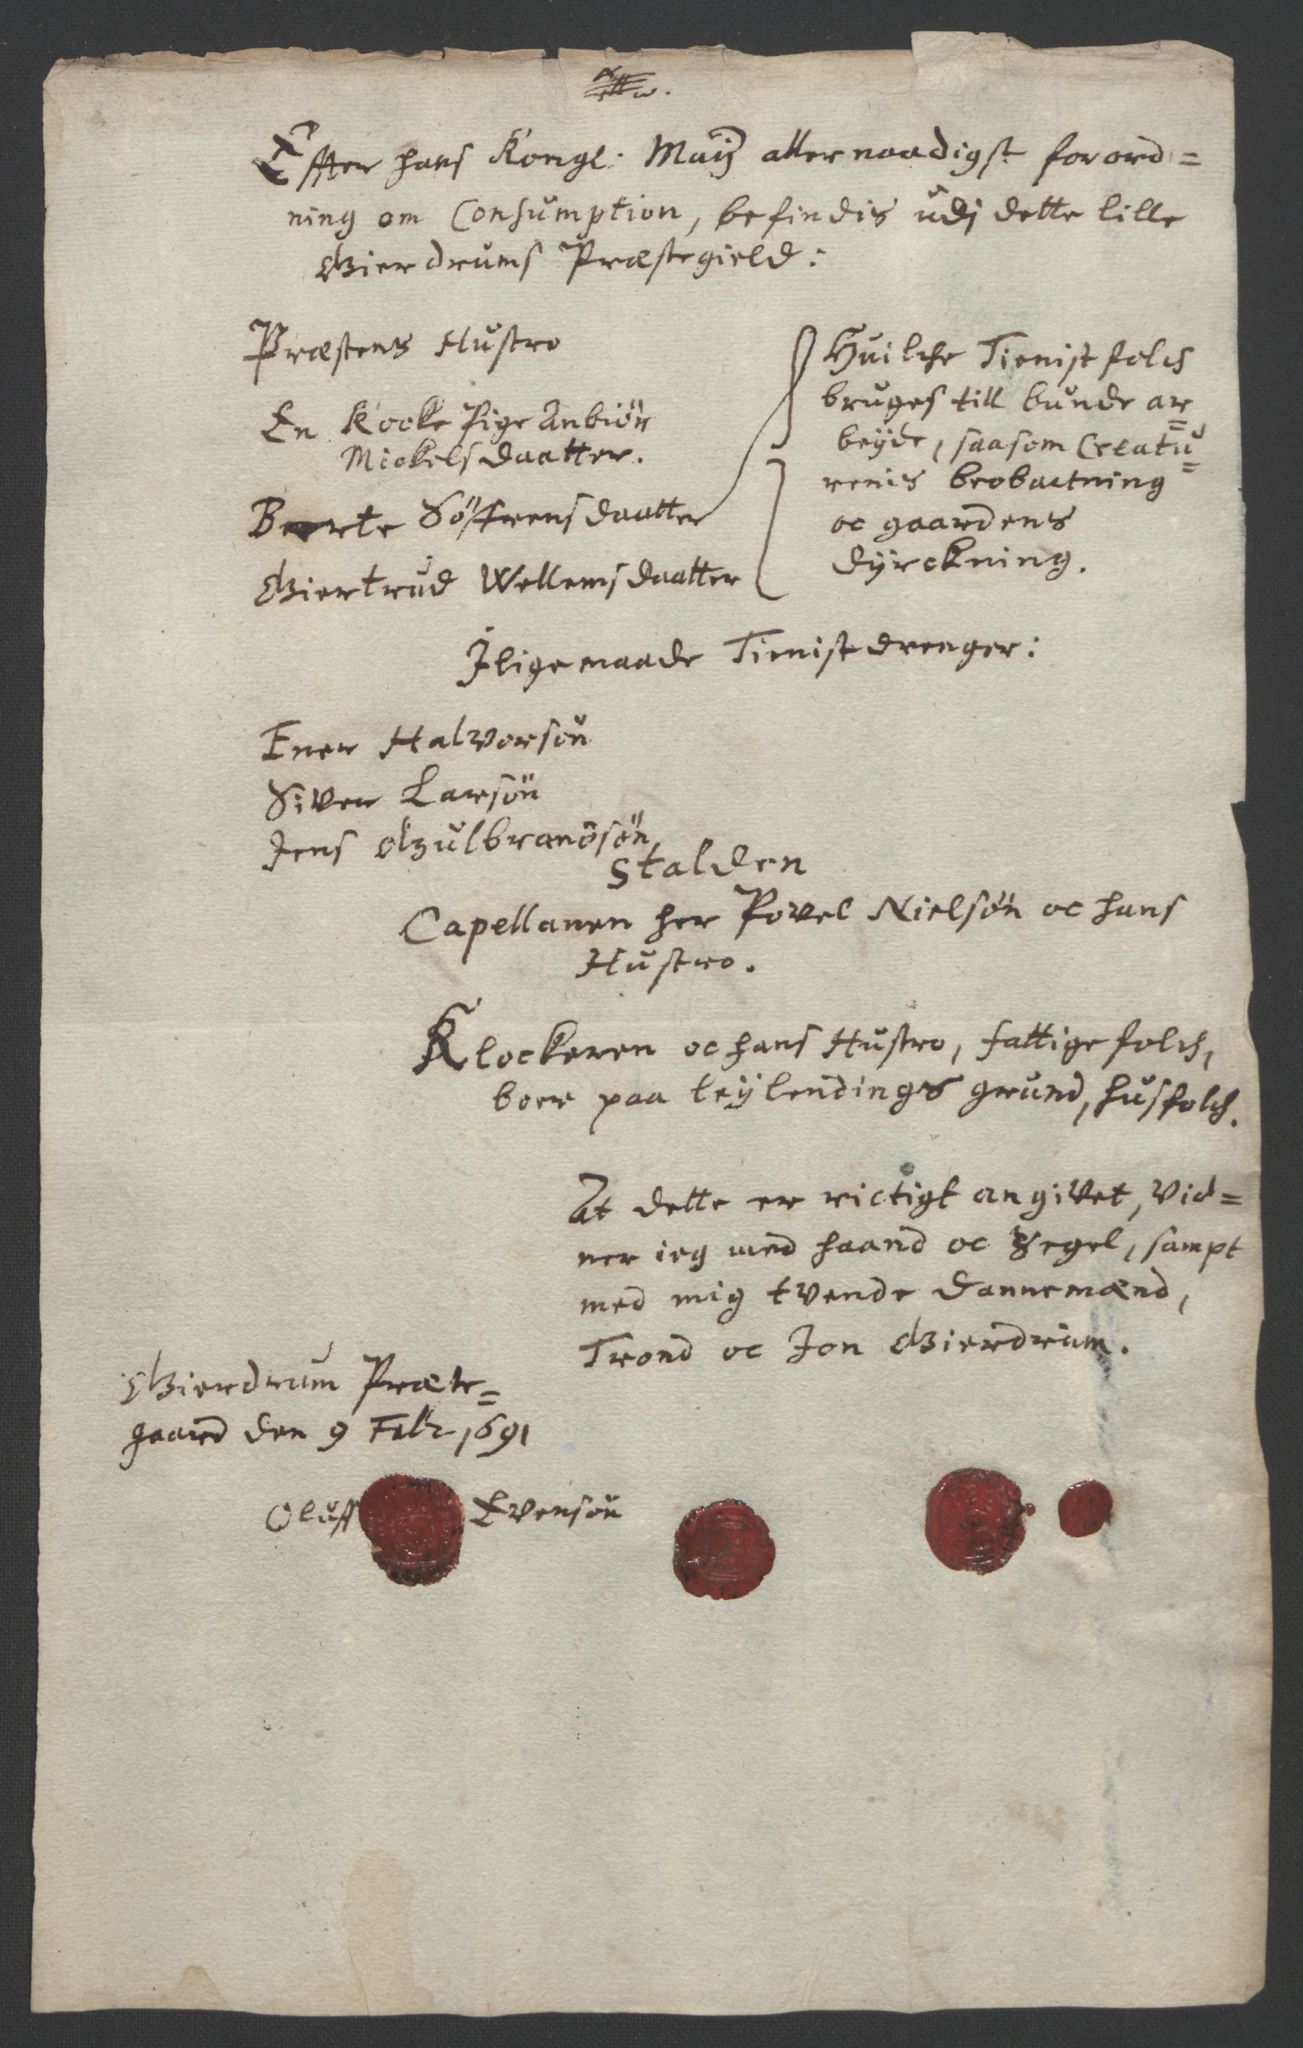 Effter hans Kongl: Maÿ allernaadigst forord=
ning om Consumption, befindis udj dette lille
Gierdrums Præstegield:
Præstens Hustro
En Kocke Pige Anbiör
Mickelsdaatter.
Berte Söffrensdaatter
Giertrud Wellemsdaatter
Huilche Tienistfolch
bruges till bunde ar=
beÿde, saasom Creatu=
renis beobactning
oc gaardens
dÿrckning.
Jligemaade Tienistedrenger:
Ener Halvorsøn
Siver Larsön
Jens Gulbrandsön
Stalden
Capellanen her Povel Nielsøn oc hans
Hustro.
Klockeren oc hans Hustro, fattige folch,
boer paa leÿlendings grund, husfolch.
At dette er rictigt angivet, vid=
ner ieg med haand oc Segel, sampt
med mig tvende Dannemænd,
Trond oc Jon Gierdrum.
Gierdrum Præte=
gaard den 9 Febr 1691
Oluff Evensøn